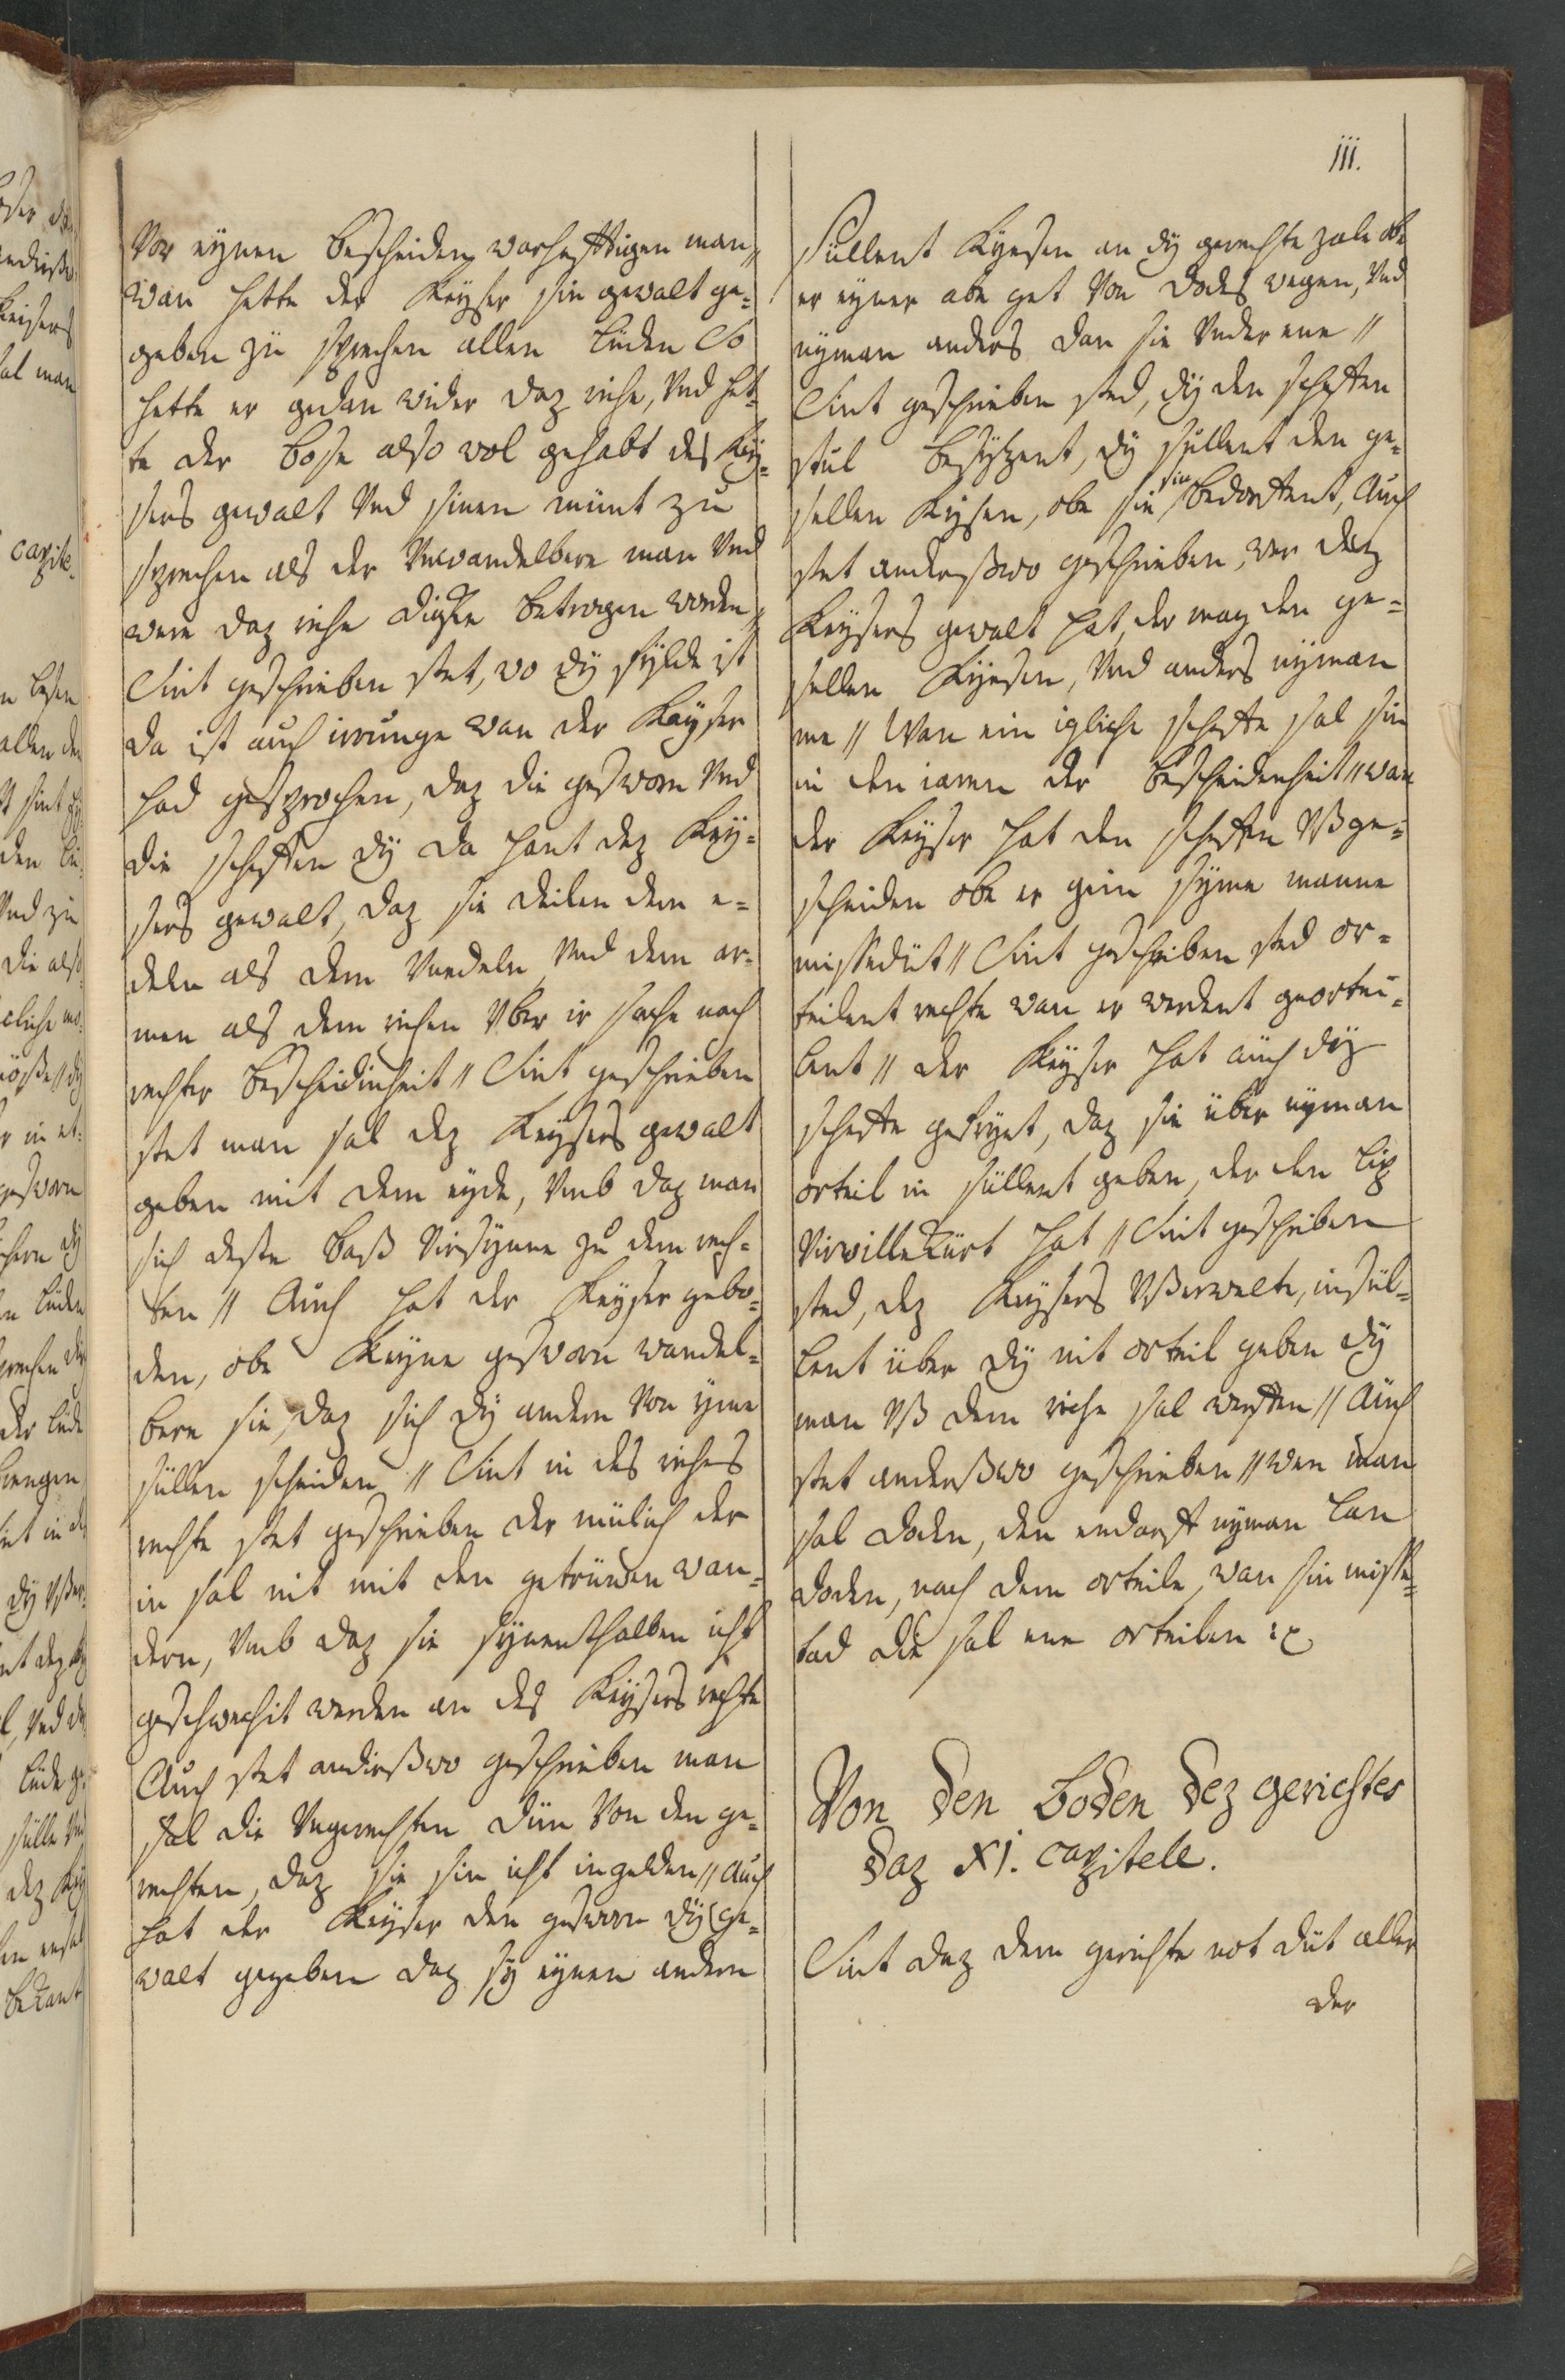 iii.
Vor eynen bescheiden warhafftigen man //
wan hette der Keyser sin gewalt ge=
geben zü sprechen allen lüden So
hette er gedan wider daz riche, Vnd het=
te der bose also wol gehabt des Key=
sers gewalt Vnd sinen münt zu
sprechen als der Vnwandelbere man Vnd
were daz riche dicke betrogen worden //
Sint geschrieben stet, wo dÿ fÿlde ist
da ist auch irrunge wan der Keyser
had gesprochen, daz die gesworn Vnd
die scheffen dÿ da hant dez Key=
sers gewalt, daz sie deilen dem e=
deln als dem Vnedeln Vnd dem ar=
men als dem richen Vber ir sache nach
rechter bescheidinheit // Sint geschrieben
stet man sal dez Keysers gewalt
geben mit dem eyde, Vmb daz man
sich deste baß Virsynne zu dem rech=
ten // Auch hat der Keyser gebo=
den, obe Keyne gesworn wandel=
bere sie, daz sich dÿ andern Von yme
süllen scheiden // Sint in des riches
rechte stet geschrieben der mülich der
in sal nit mit den getrüwen wan=
dern, Vmb daz sie synenthalben icht
geschwechit werden an des Keysers rechte
Auch stet andirßwo geschrieben man
sal die Vngerechten dün Von den ge=
rechten, daz sie sin icht ingelden // Auch
hat der Keyser den gesworn dÿ ge=
walt gegeben daz sÿ eynen andern
Süllent Kyesen an dÿ gerechte zale obe
er eyner abe get Von dodes wegen, Vnd
nyman anders dan sie Vnder ene //
Sint geschrieben sted, dÿ den scheffen
stul besytzent, dÿ süllent den ge=
sellen Kysen, obe sie sin bedorffent, Auch
stet anderßwo geschrieben, wer dez
Keysers gewalt hat, der mag den ge=
sellen Kyesen, Vnd anders nyman
me // Wan ein igliche scheffe sal sin
in den iaren der bescheidenheit // wan
der Keyser hat den scheffen Vß ge=
scheiden obe er gein syme manne
missedüt // Sint geschrieben sted or=
teilent rechte wan er werdent georteı=
lent // der Keyser hat auch dÿ
scheffe gefryet, daz sie über nyman
orteil in süllent geben, der den lip
Virwillekürt hat // Sint geschrieben
sted, dez Keysers Vßerwelte, insül=
lent über dÿ nit orteil geben dÿ
man Vß dem riche sal werffen // Auch
stet anderßwo geschrieben // wen man
sal doden, den endarff nyman lan
doden, nach dem orteile, wan sin misse=
tad die sal ene orteilen ꝛc.
Von den Boden dez gerichtes
daz XI. capitele.
Sint daz dem gerichte not düt aller
der